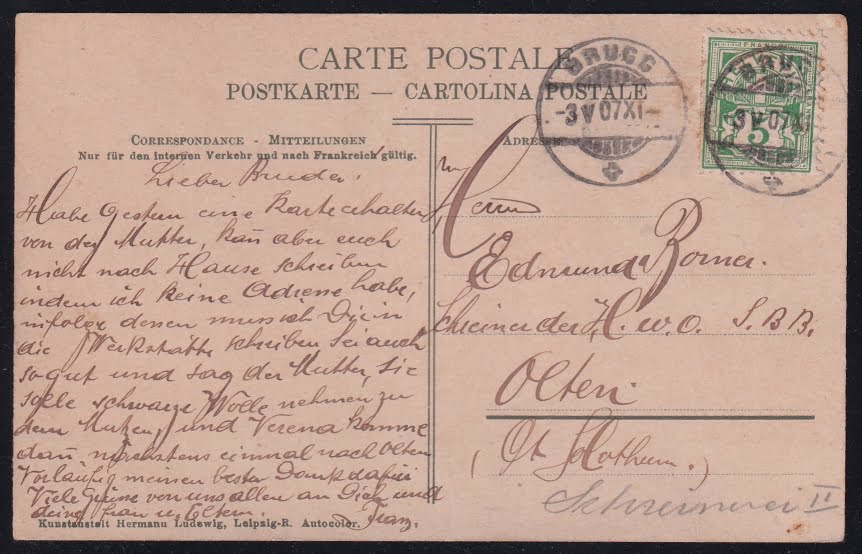 CARTE POSTALE
POSTKARTE — CARTOLINA POSTALE
CORRESPONDANCE - MITTEILUNGEN
Nur für den internen Verkehr und nach Frankreich gültig.
ADRESSE
BRUGG
-3 V 07 XI-
BRUGG
-3 V 07 XI
FRANCO
5
Lieber Bruder!
Habe Gestern eine Karte erhalten
von der Mutter, kañ aber euch
nicht nach Hause schreiben
indem ich keine Adresse habe,
infolge dessen muss ich Dir in
die Werkstätte schreiben Sei auch
so gut und sag der Mutter, sie
solle schwarze Wolle nehmen zu
dem und Verena komme
dañ nächstens einmal nach Olten
Vorläufig meinen besten Dank dafür
Viele Grüsse von uns allen an Dich und
deine Frau u. Eltern. Franz.
Herrn
Edmund Borner.
Schreiner der H. W. O. S. B. B.
Olten.
(Ct Solothurn.)
Schreinerei II
Kunstanstalt Hermann Ludewig, Leipzig-R. Autocolor.